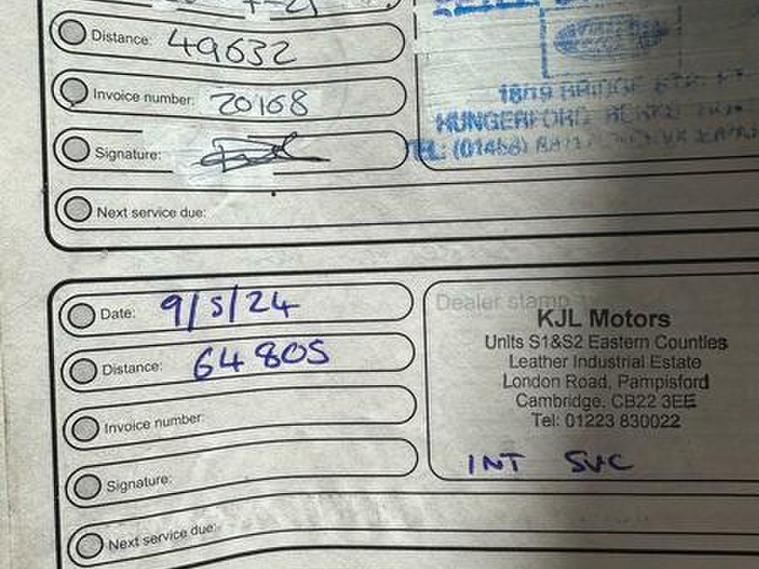 Distance: 49632
Invoice number: 20168
Signature:
Next service due:
HUNGERFORD
TEL: (01488)
Date: 9/5/24
Distance: 64805
Invoice number:
Signature:
Next service due:
Dealer stamp
KJL Motors
Units S1&S2 Eastern Counties
Leather Industrial Estate
London Road, Pampisford
Cambridge, CB22 3EE
Tel: 01223 830022
INT SVC